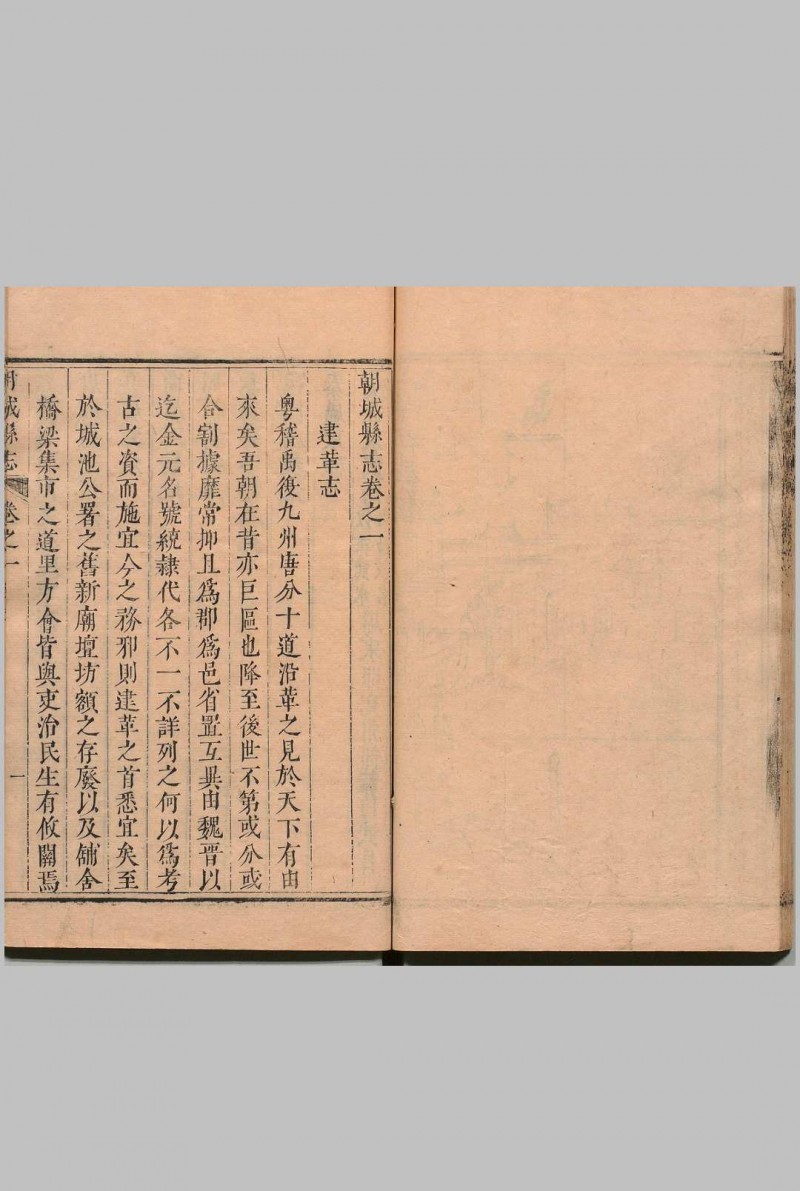 朝城縣志卷之一
建革志
粵稽禹復九州唐分十道沿革之見於天下有由
來矣吾朝在昔亦巨區也降至後世不第或分或
合割據靡常抑且爲郡爲邑省置互異由魏晉以
迄金元名號統隷代各不一不詳列之何以爲考
古之資而施宜今之務邪則建革之首悉宜矣至
於城池公署之舊新廟壇坊額之存廢以及舖舍
橋梁集市之道里方會皆與吏治民生有攸關焉
朝城縣志 卷之一 一